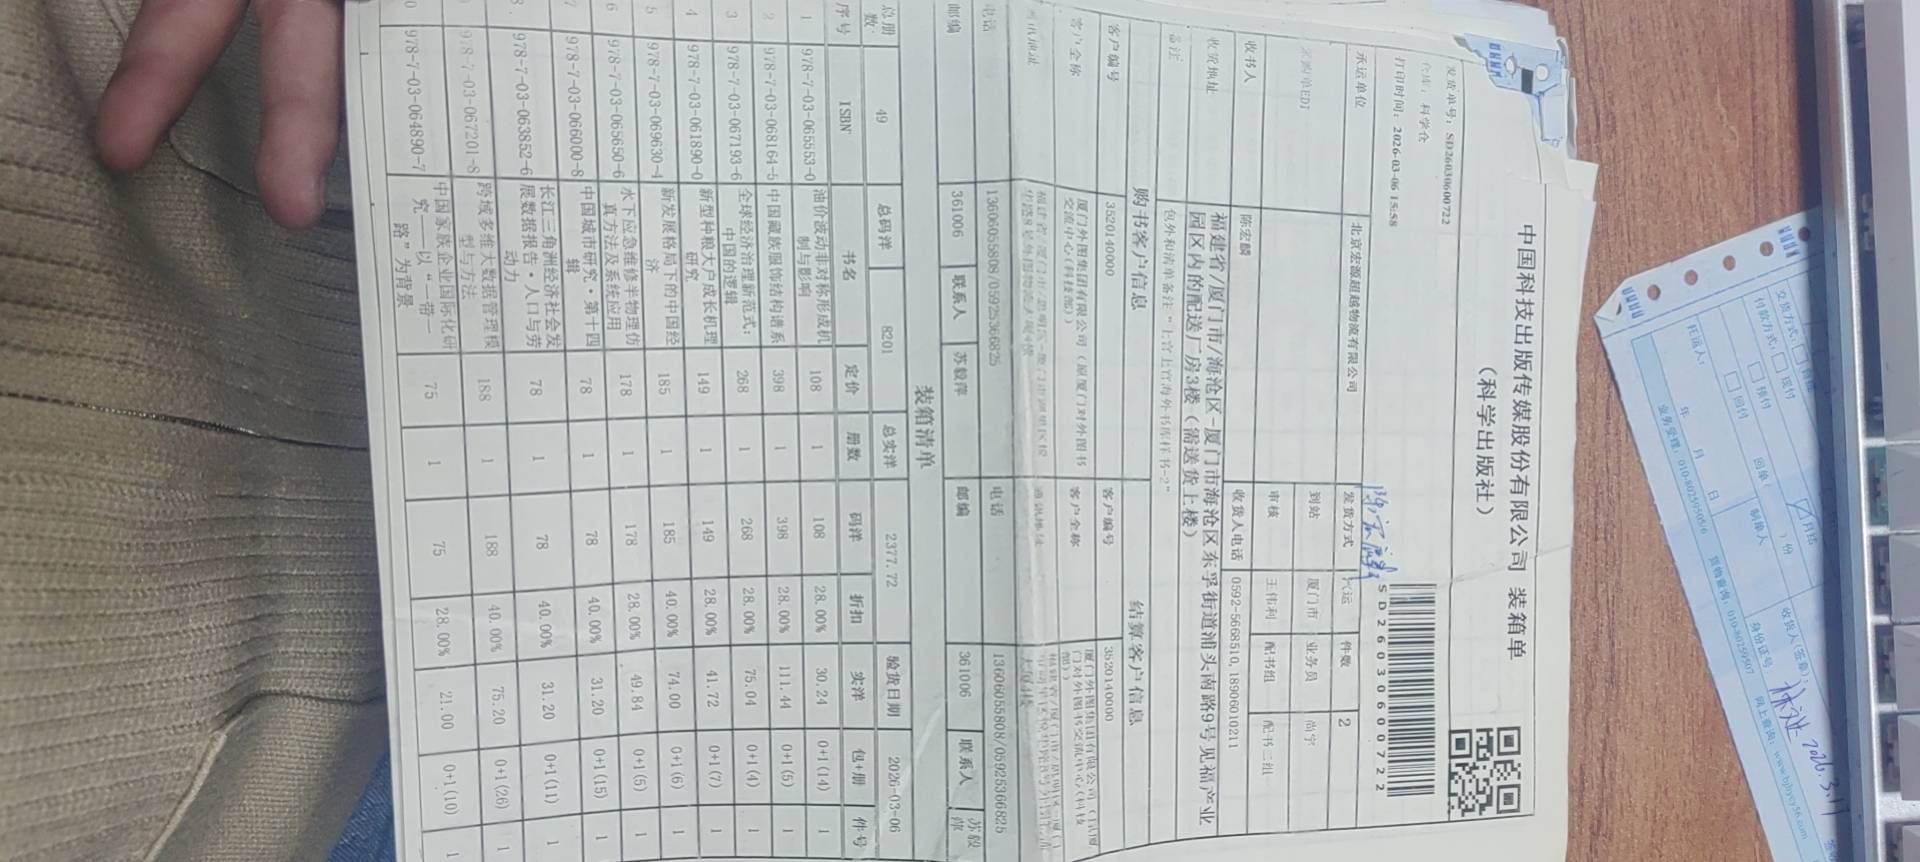 中国科技出版传媒股份有限公司 装箱单
（科学出版社）
发货单号：SD2603060000722
仓库：科学仓
打印时间：2026-03-06 15:58
SD2603060000722
承运单位 北京宏源超越物流有限公司 发货方式 汽运 件数 2
采购单EDI 到站 厦门市 业务员 尚宇
审核 王伟利 配书组 配书二组
收书人 陈宏麟 收货人电话 0592-5668510,18906010211
收货地址 福建省/厦门市/海沧区-厦门市海沧区东孚街道浦头南路9号见福产业园区内的配送厂房3楼（需送货上楼）
备注
购书客户信息 结算客户信息
客户编号 3520140000 客户编号 3520140000
客户全称 厦门外图集团有限公司（原厦门对外图书交流中心(科技部)） 客户全称
电话 13606055808/05925366825 电话 13606055808/05925366825
邮编 361006 联系人 苏毅萍 邮编 361006 联系人 苏毅萍
装箱清单
总册数： 49 总码洋 8201 总实洋 2377.72 验货日期 2026-03-06
序号 ISBN 书名 定价 册数 码洋 折扣 实洋 包+册 件号
1 978-7-03-065553-0 油价波动非对称形成机制与影响 108 1 108 28.00% 30.24 0+1(14) 1
2 978-7-03-068164-5 中国藏族服饰结构谱系 398 1 398 28.00% 111.44 0+1(5) 1
3 978-7-03-067193-6 全球经济治理新范式：中国的逻辑 268 1 268 28.00% 75.04 0+1(4) 1
4 978-7-03-061890-0 新型种粮大户成长机理研究 149 1 149 28.00% 41.72 0+1(7) 1
5 978-7-03-069630-4 新发展格局下的中国经济 185 1 185 40.00% 74.00 0+1(6) 1
6 978-7-03-065650-6 水下应急维修半物理仿真方法及系统应用 178 1 178 28.00% 49.84 0+1(5) 1
7 978-7-03-066000-8 中国城市研究·第十四辑 78 1 78 40.00% 31.20 0+1(15) 1
8 978-7-03-063852-6 长江三角洲经济社会发展数据报告·人口与劳动力 78 1 78 40.00% 31.20 0+1(11) 1
978-7-03-067201-8 跨域多维大数据管理模型与方法 188 1 188 40.00% 75.20 0+1(26) 1
0 978-7-03-064890-7 中国家族企业国际化研究——以“一带一路”为背景 75 1 75 28.00% 21.00 0+1(10) 1
月结
现付
预付
回付
付款方式：
回单（ ）份
托运人：
年 月 日
制单人
收货人(签章)：
身份证号：
2026.3.11